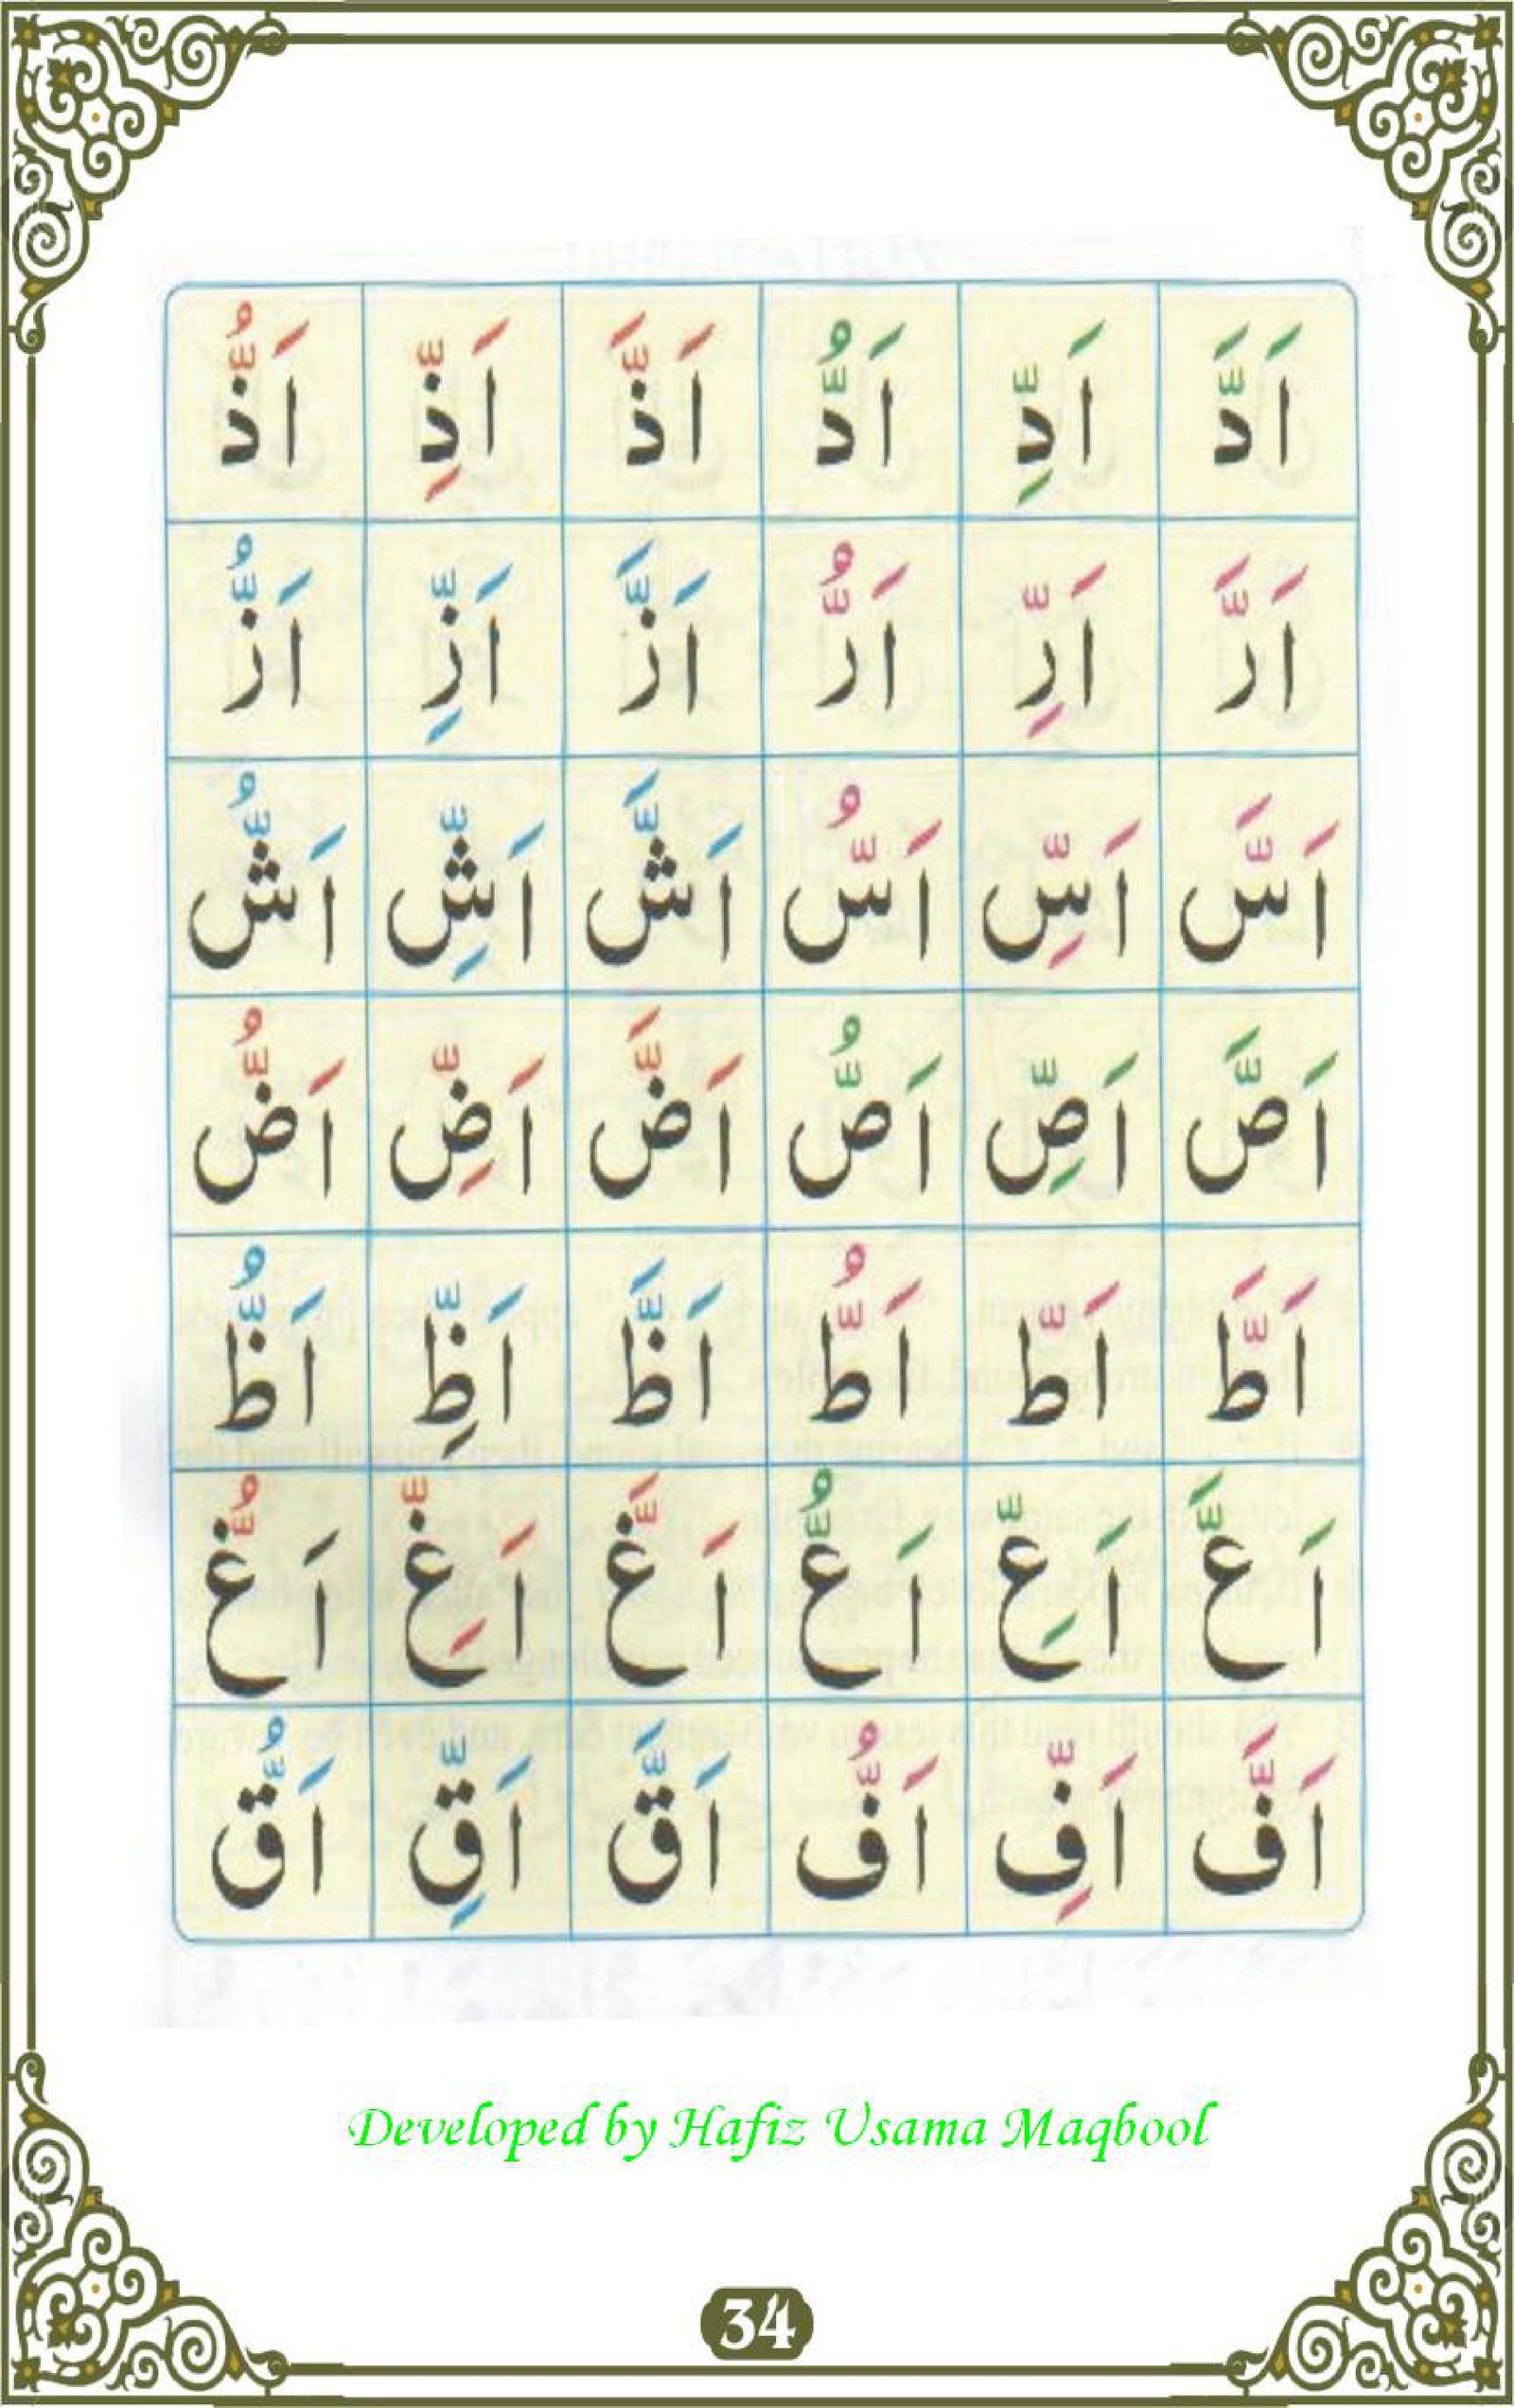 اَدَّ اَدِّ اَدُّ اَذَّ اَذِّ اَذُّ
اَرَّ اَرِّ اَرُّ اَزَّ اَزِّ اَزُّ
اَسَّ اَسِّ اَسُّ اَشَّ اَشِّ اَشُّ
اَصَّ اَصِّ اَصُّ اَضَّ اَضِّ اَضُّ
اَطَّ اَطّ اَطُّ اَظَّ اَظِّ اَظُّ
اَعَّ اَعِّ اَعُّ اَغَّ اَغِّ اَغُّ
اَفَّ اَفِّ اَفُّ اَقَّ اَقِّ اَقُّ
Developed by Hafiz Usama Maqbool
34